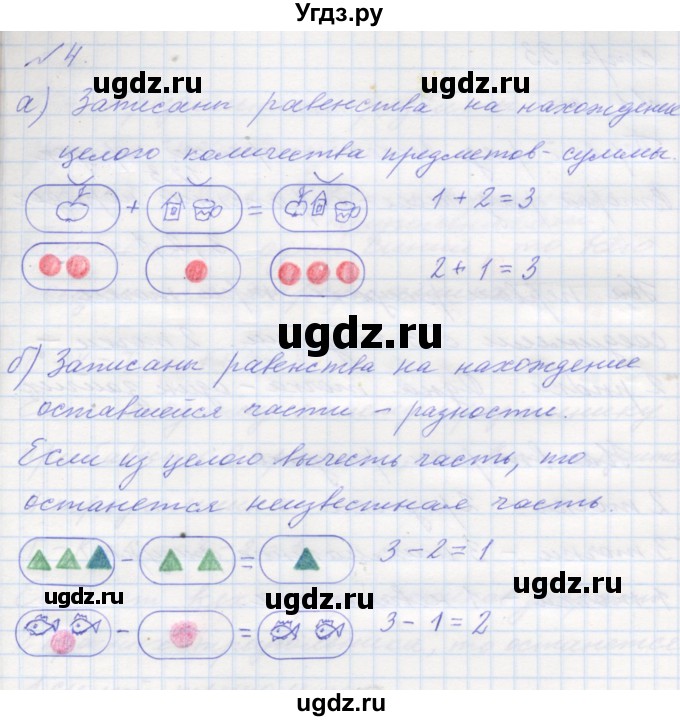 Угдз.ру
№ 4.
ugdz.ru ugdz.ru
а) Записаны равенства на нахождение
целого количества предметов - суммы.
+ = 1 + 2 = 3
2 + 1 = 3
ugdz.ru
б) Записаны равенства на нахождение
оставшейся части - разности.
Если из целого вычесть часть, то
останется неизвестная часть.
- = 3 - 2 = 1
ugdz.ru ugdz.ru ugdz.ru
- = 3 - 1 = 2
ugdz.ru